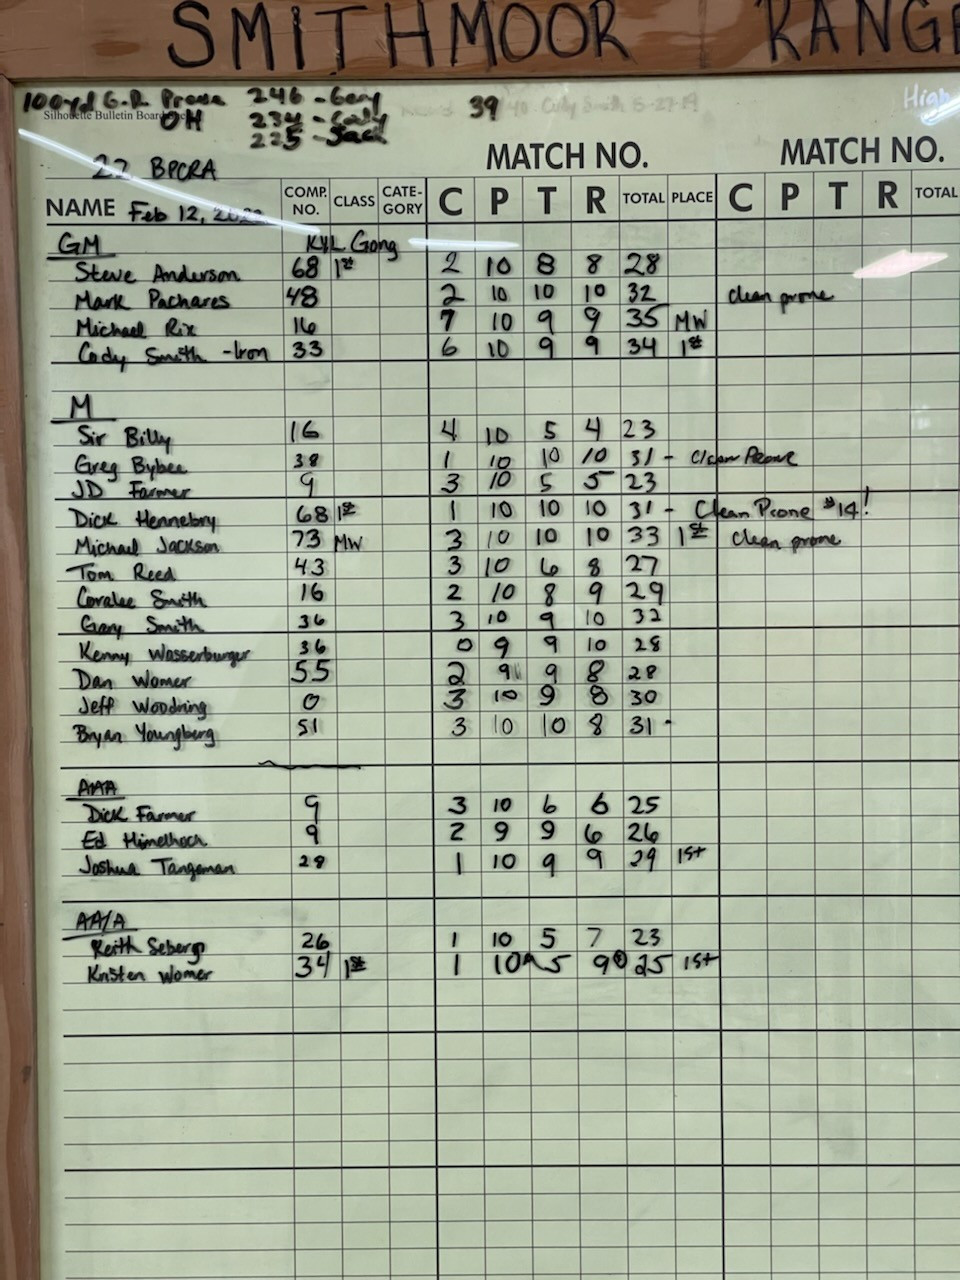 SMITHMOOR RANGE
100yd G.R. Prone 246 - Gary 39 High
Silhouette Bulletin Board
OH 234 - Cody
225 - Jack
22 BPCRA MATCH NO. MATCH NO.
NAME Feb 12, COMP. NO. CLASS CATE-GORY C P T R TOTAL PLACE C P T R TOTAL
GM KYL Gong
Steve Anderson 68 1st 2 10 8 8 28
Mark Pachares 48 2 10 10 10 32 clean prone
Michael Rix 16 7 10 9 9 35 MW
Cody Smith - Iron 33 6 10 9 9 34 1st
M
Sir Billy 16 4 10 5 4 23
Greg Bybee 38 1 10 10 10 31 - Clean Prone
JD Farmer 9 3 10 5 5 23
Dick Hennebry 68 1st 1 10 10 10 31 - Clean Prone #14!
Michael Jackson 73 MW 3 10 10 10 33 1st clean prone
Tom Reed 43 3 10 6 8 27
Coralee Smith 16 2 10 8 9 29
Gary Smith 36 3 10 9 10 32
Kenny Wasserburger 36 0 9 9 10 28
Dan Womer 55 2 9 9 8 28
Jeff Woodring 0 3 10 9 8 30
Bryan Youngberg 51 3 10 10 8 31 -
AAA
Dick Farmer 9 3 10 6 6 25
Ed Himelhoch 9 2 9 9 6 26
Joshua Tangeman 28 1 10 9 9 29 1st
AA/A
Keith Seberg 26 1 10 5 7 23
Kristen Womer 34 1st 1 10 5 9 25 1st